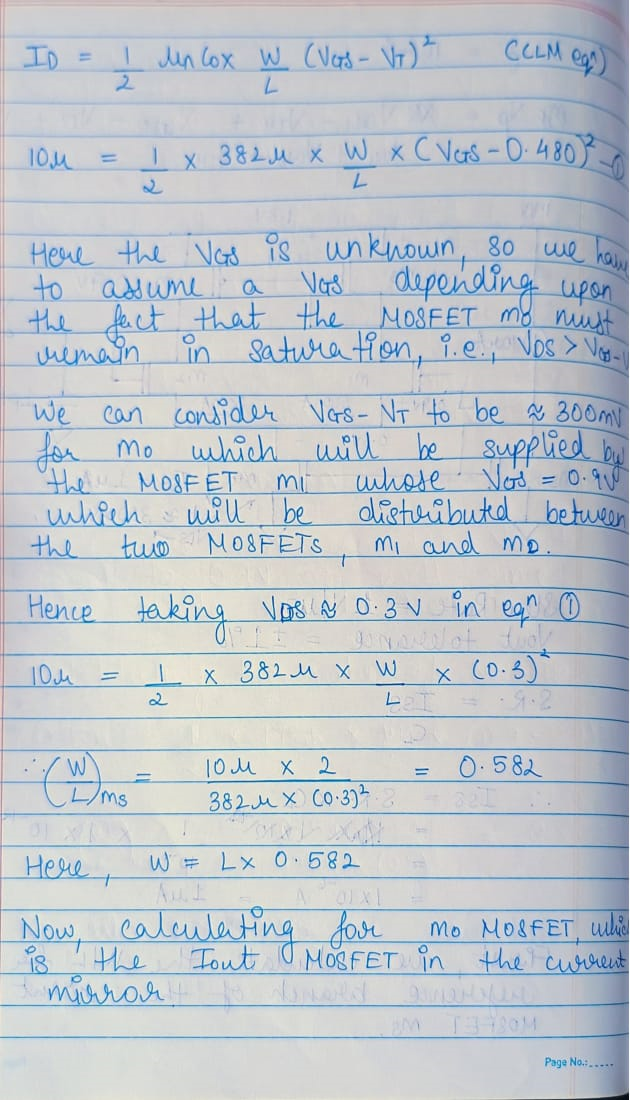 ID = 1/2 μnCox W/L (VGS - VT)² (CLM eqn)
10μ = 1/2 × 382μ × W/L × (VGS - 0.480)² - ①
Here the VGS is unknown, so we have
to assume a VGS depending upon
the fact that the MOSFET m0 must
remain in saturation, i.e., VDS > VGS-V
We can consider VGS - VT to be ≈ 300mV
for m0 which will be supplied by
the MOSFET m1 whose VGS = 0.9V
which will be distributed between
the two MOSFETS, m1 and m0.
Hence taking VDS ≈ 0.3V in eqn ①
10μ = 1/2 × 382μ × W/L × (0.3)²
∴ (W/L)m5 = 10μ × 2 / 382μ × (0.3)² = 0.582
Here, W = L × 0.582
Now, calculating for m0 MOSFET, whic
is the Iout MOSFET in the current
mirror.
Page No.:.....